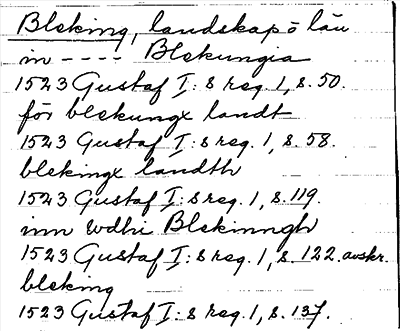 Bleking, landskap o län
in ---- Blekungia
1523 Gustaf I:s reg. 1, s. 50.
för blekungx landt
1523 Gustaf I:s reg. 1, s. 58.
blekingx landth
1523 Gustaf I:s reg. 1, s. 119.
inn wdhi Blekinngh
1523 Gustaf I:s reg. 1, s. 122. avskr.
bleking
1523 Gustaf I:s reg. 1, s. 137.